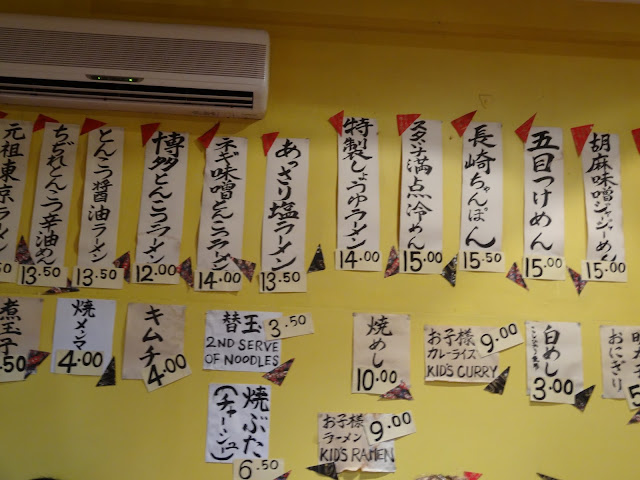 元祖東京ラーメン
50
ちぢれとんこつ辛油めん
13.50
とんこつ醤油ラーメン
13.50
博多とんこつラーメン
12.00
ネギ味噌とんこつラーメン
14.00
あっさり塩ラーメン
13.50
特製しょうゆラーメン
14.00
スタミナ満点冷めん
15.00
長崎ちゃんぽん
15.50
五目つけめん
15.00
胡麻味噌ジャージャーめん
15.00
煮玉子
.50
焼メンマ
4.00
キムチ
4.00
替玉
3.50
2ND SERVE
OF NOODLES
焼めし
10.00
お子様
9.00
カレーライス
KID'S CURRY
白めし
3.00
おにぎり
5
焼ぶた
(チャーシュー)
6.50
お子様
9.00
ラーメン
KID'S RAMEN